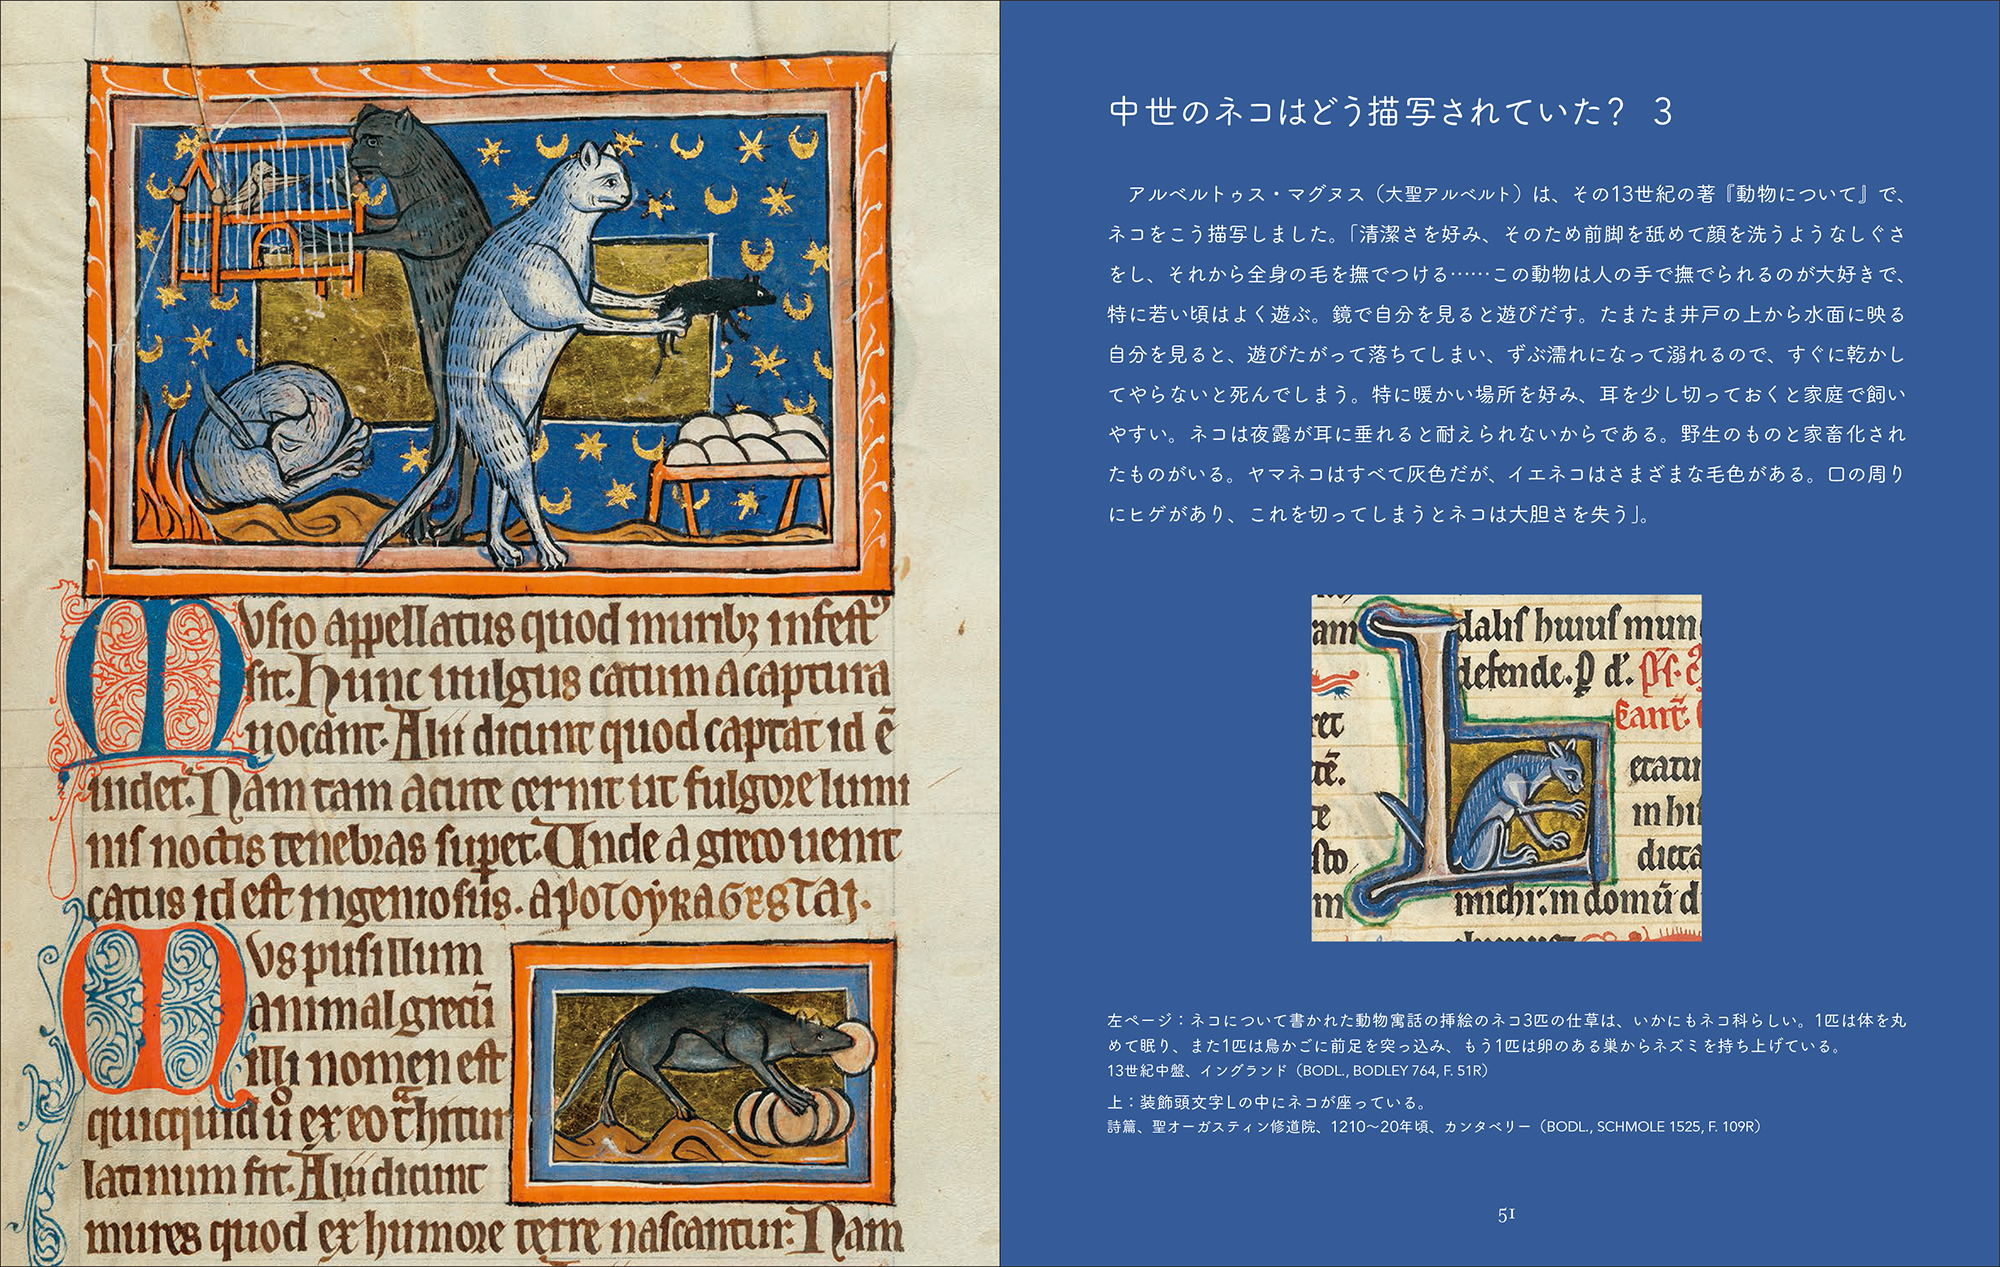 Musio appellatus quod muribꝫ infestꝰ
sit. Hunc uulgus catum a captura
uocant. Alii dicunt quod captat id ē
uidet. Nam tam acute cernit ut fulgore lumi
nis noctis tenebras suꝑet. Unde a greco uenit
catus id est ingeniosus.
Mus pusillum
animal grecū
illi nomen est
quicquid uͦ ex eo
latinum fit. Alii dicunt
mures quod ex humore terre nascantur. Nam
中世のネコはどう描写されていた？ 3
アルベルトゥス・マグヌス（大聖アルベルト）は、その13世紀の著『動物について』で、
ネコをこう描写しました。「清潔さを好み、そのため前脚を舐めて顔を洗うようなしぐさ
をし、それから全身の毛を撫でつける……この動物は人の手で撫でられるのが大好きで、
特に若い頃はよく遊ぶ。鏡で自分を見ると遊びだす。たまたま井戸の上から水面に映る
自分を見ると、遊びたがって落ちてしまい、ずぶ濡れになって溺れるので、すぐに乾かし
てやらないと死んでしまう。特に暖かい場所を好み、耳を少し切っておくと家庭で飼い
やすい。ネコは夜露が耳に垂れると耐えられないからである。野生のものと家畜化され
たものがいる。ヤマネコはすべて灰色だが、イエネコはさまざまな毛色がある。口の周り
にヒゲがあり、これを切ってしまうとネコは大胆さを失う」。
ram L dalis huius mun
defende.
ret
etatu
te
in hu
dicta
m michi. in domū d
左ページ：ネコについて書かれた動物寓話の挿絵のネコ3匹の仕草は、いかにもネコ科らしい。1匹は体を丸
めて眠り、また1匹は鳥かごに前足を突っ込み、もう1匹は卵のある巣からネズミを持ち上げている。
13世紀中盤、イングランド（BODL., BODLEY 764, F. 51R）
上：装飾頭文字Lの中にネコが座っている。
詩篇、聖オーガスティン修道院、1210〜20年頃、カンタベリー（BODL., SCHMOLE 1525, F. 109R）
51